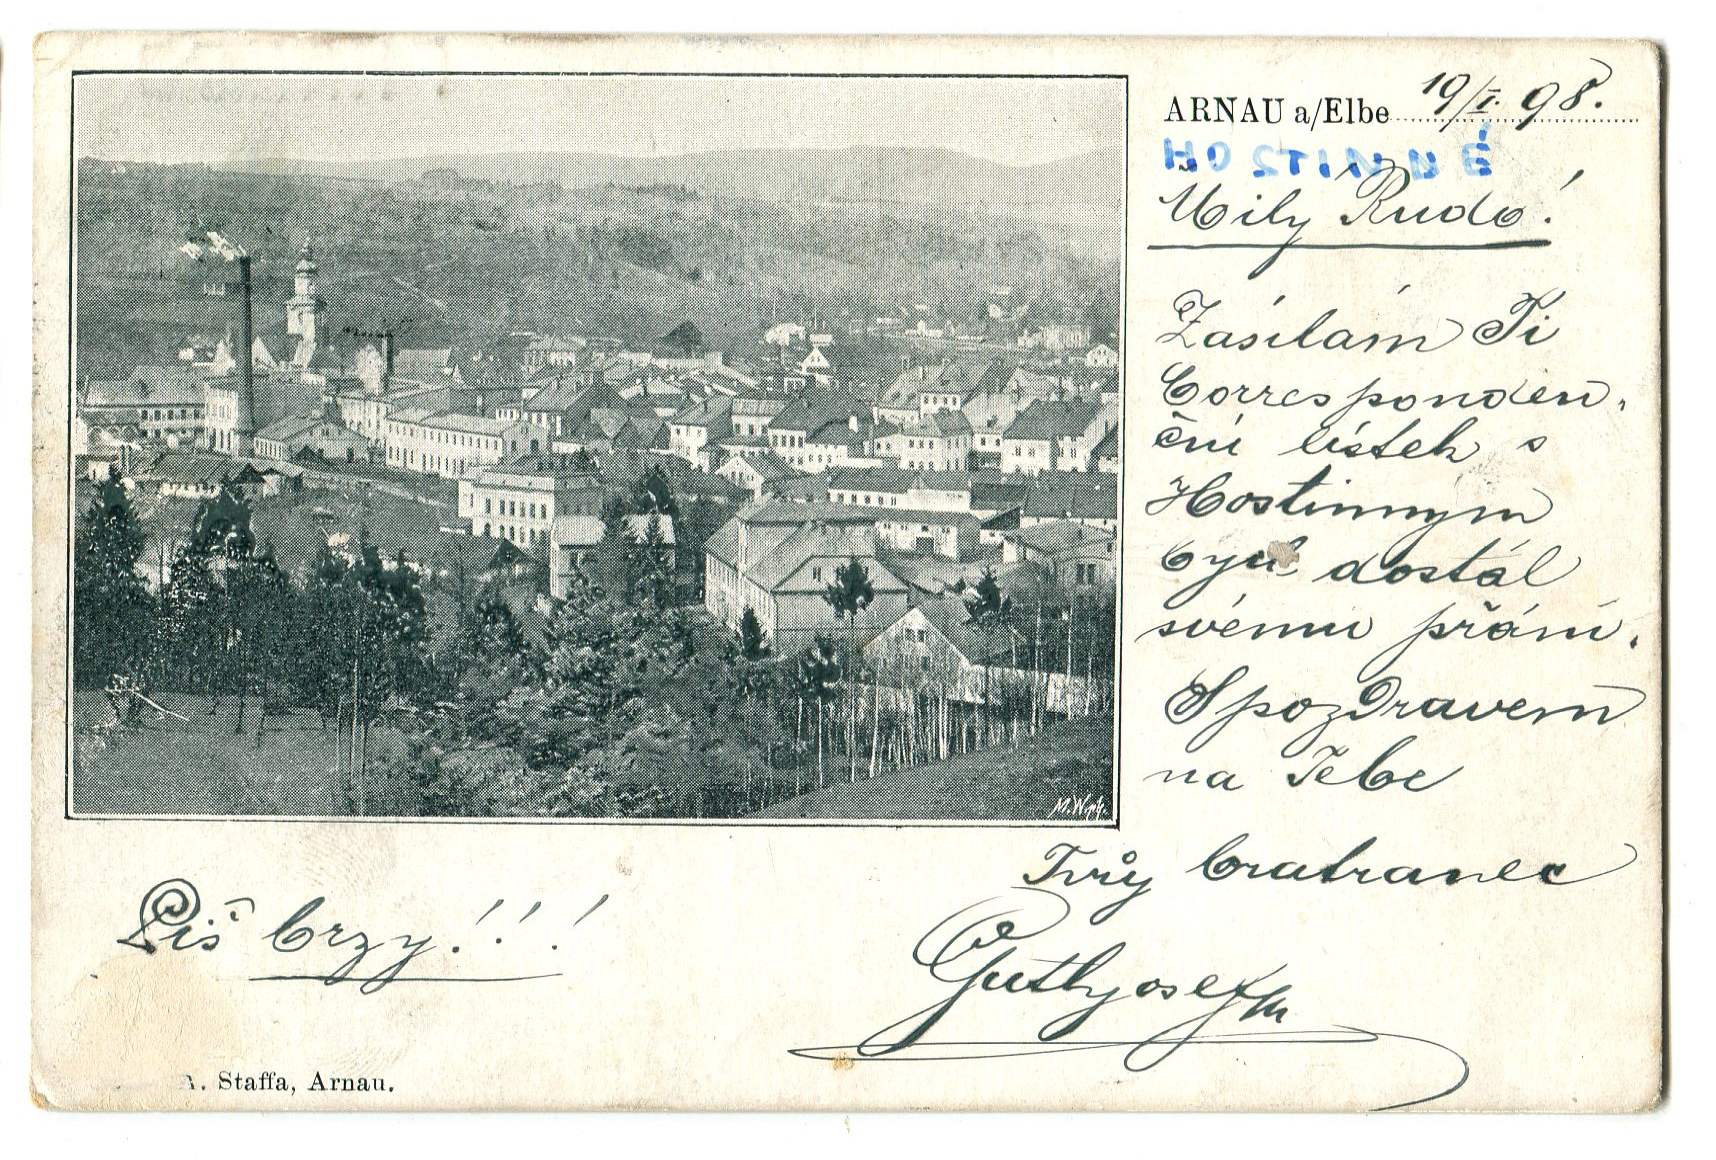 ARNAU a/Elbe 19/I. 98.
HOSTINNÉ
Milý Rudo!
Zasílám Ti
Corresponden.
ční lístek s
Hostinným
bys dostál
svému přání.
S pozdravem
na Tebe
Tvůj bratranec
Guth Josef
Piš brzy!!!
M. W. ph.
R. Staffa, Arnau.